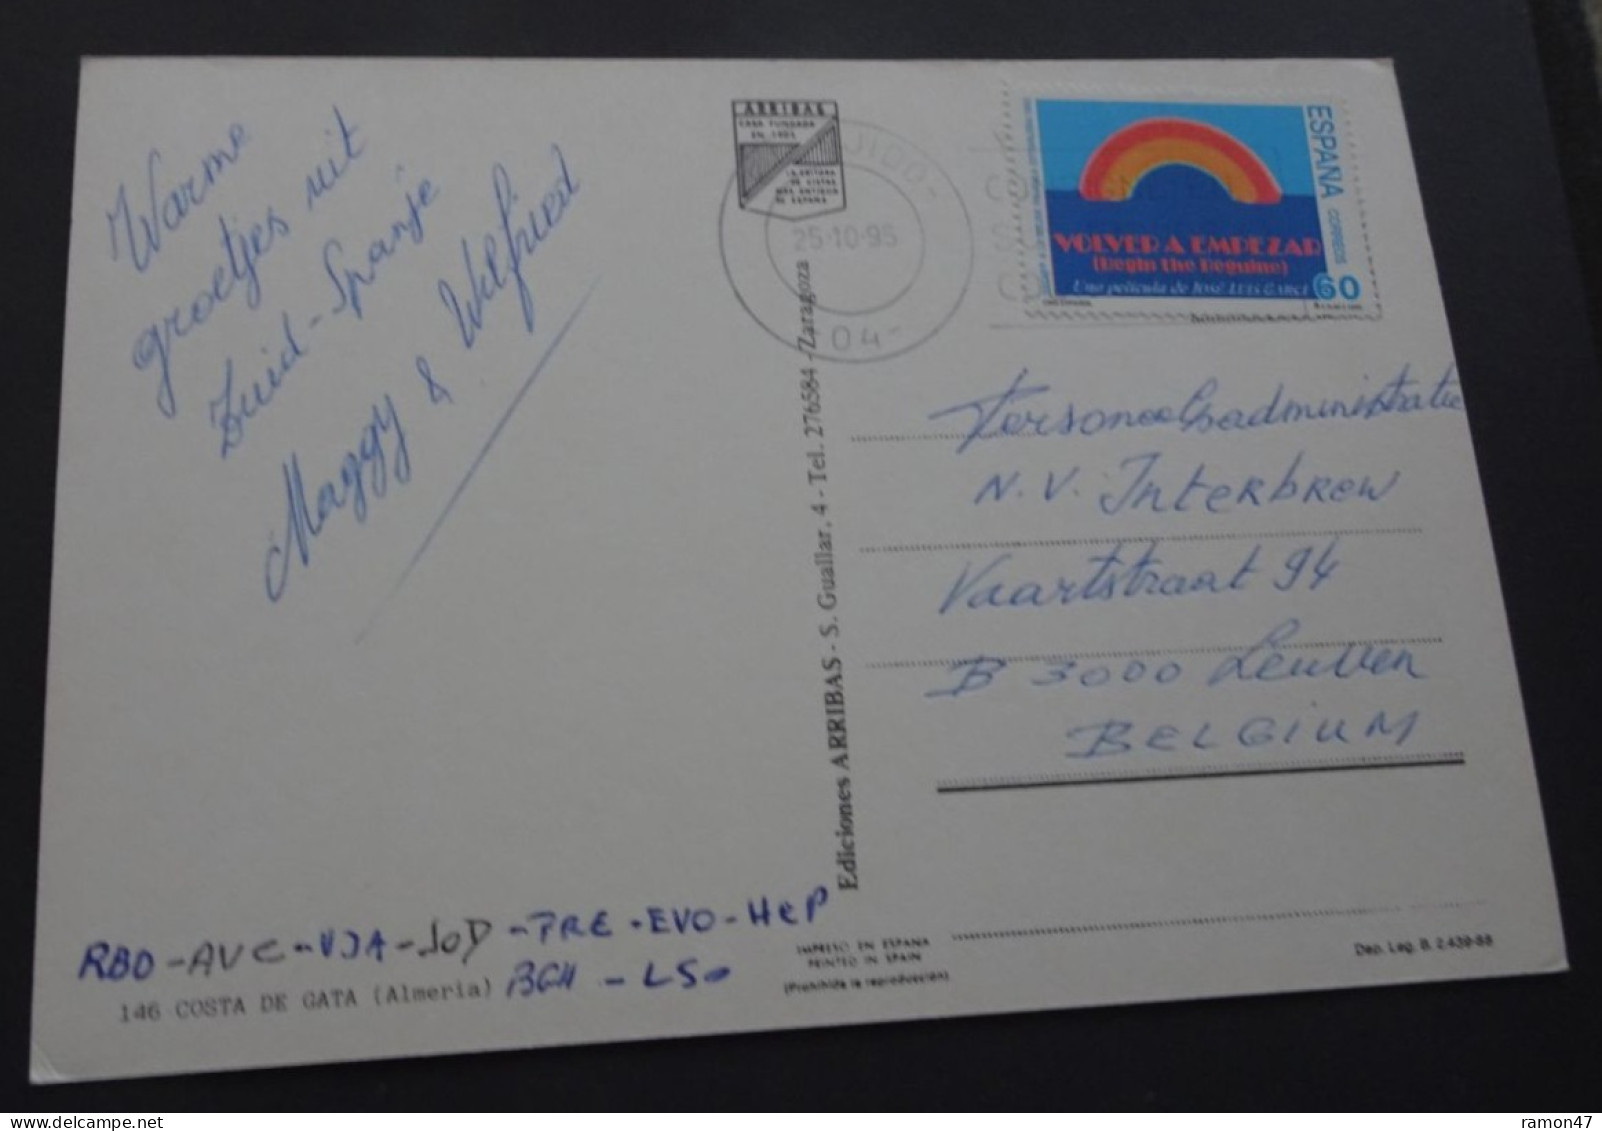 Warme
groetjes uit
Zuid-Spanje
Maggy & Wilfried
RBO-AVC-VJA-JOD-PRE-EVO-HEP
BGH-LSO
146 COSTA DE GATA (Almeria)
ARRIBAS
CASA FUNDADA
Ediciones ARRIBAS - S. Guallar, 4 - Tel. 276584 - Zaragoza
25-10-95
04-
ESPAÑA CORREOS
VOLVER A EMPEZAR
(Begin the Beguine)
Una película de JOSÉ LUIS GARCI
60
Personeelsadministratie
N.V. Interbrew
Vaartstraat 94
B 3000 Leuven
BELGIUM
IMPRESO EN ESPAÑA
PRINTED IN SPAIN
(Prohibida la reproducción)
Dep. Leg. B. 2.439-88
ramon47